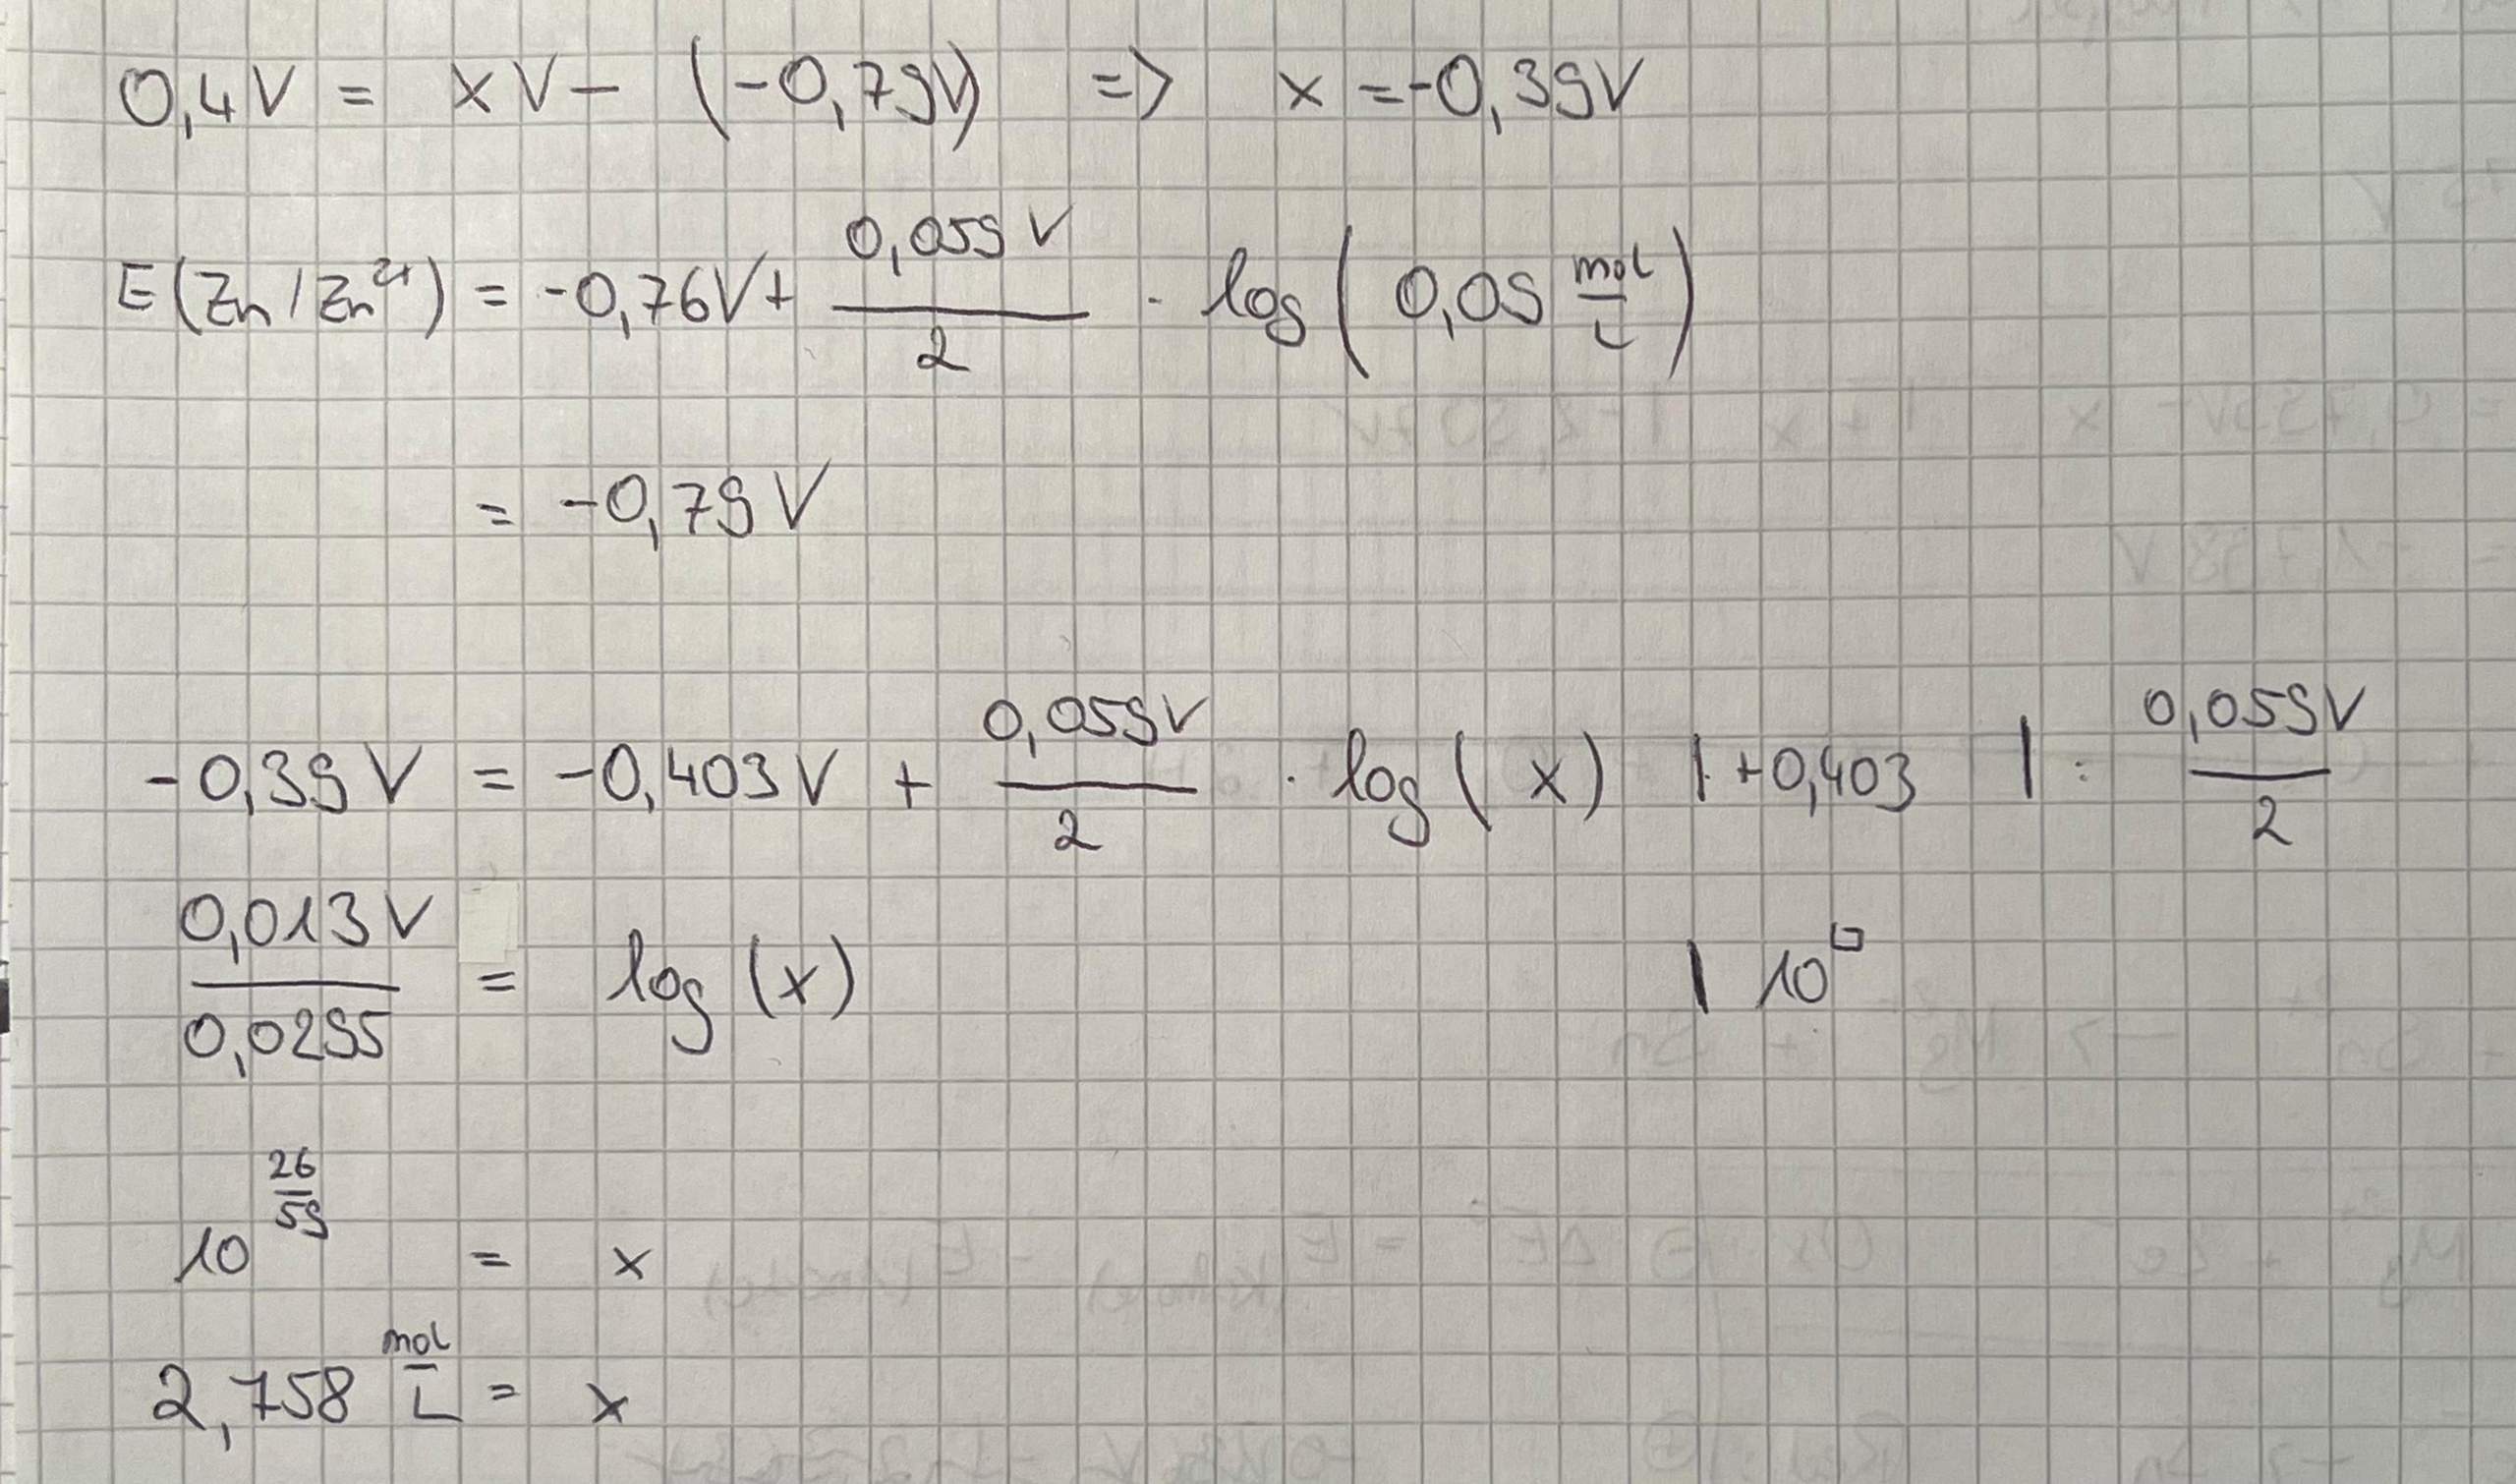 0,4V = x V - (-0,79V) => x = -0,39V
E(Zn/Zn²⁺) = -0,76V + 0,059 V / 2 · log(0,09 mol/L)
= -0,79 V
-0,39 V = -0,403 V + 0,059V / 2 · log(x) | +0,403 | : 0,059V / 2
0,013 V / 0,0295 = log(x) | 10^□
10^(26/59) = x
2,758 mol/L = x